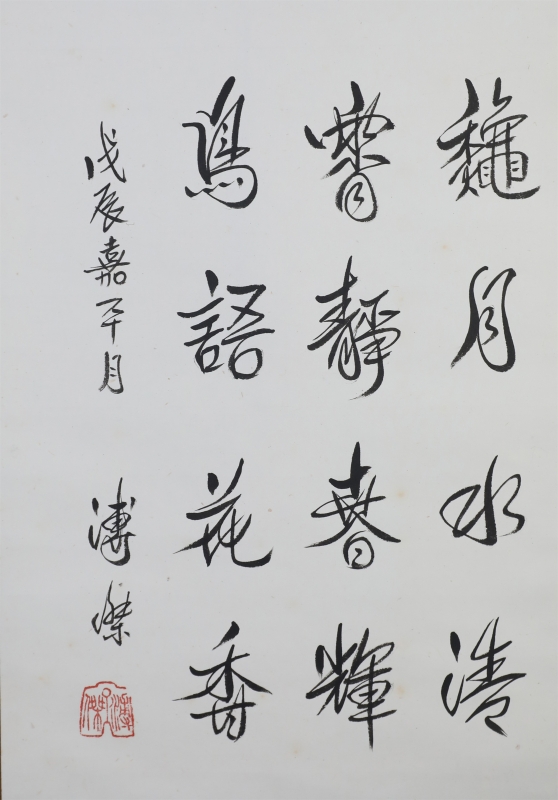 龝月水清
靜春輝
鳥語花香
戊辰嘉平月 溥傑